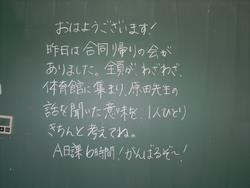 おはようございます!
昨日は合同帰りの会が
ありました。全員が、わざわざ、
体育館に集まり、原田先生の
話を聞いた意味を、1人ひとり
きちんと考えてね。
A日課6時間!がんばるぞ〜!